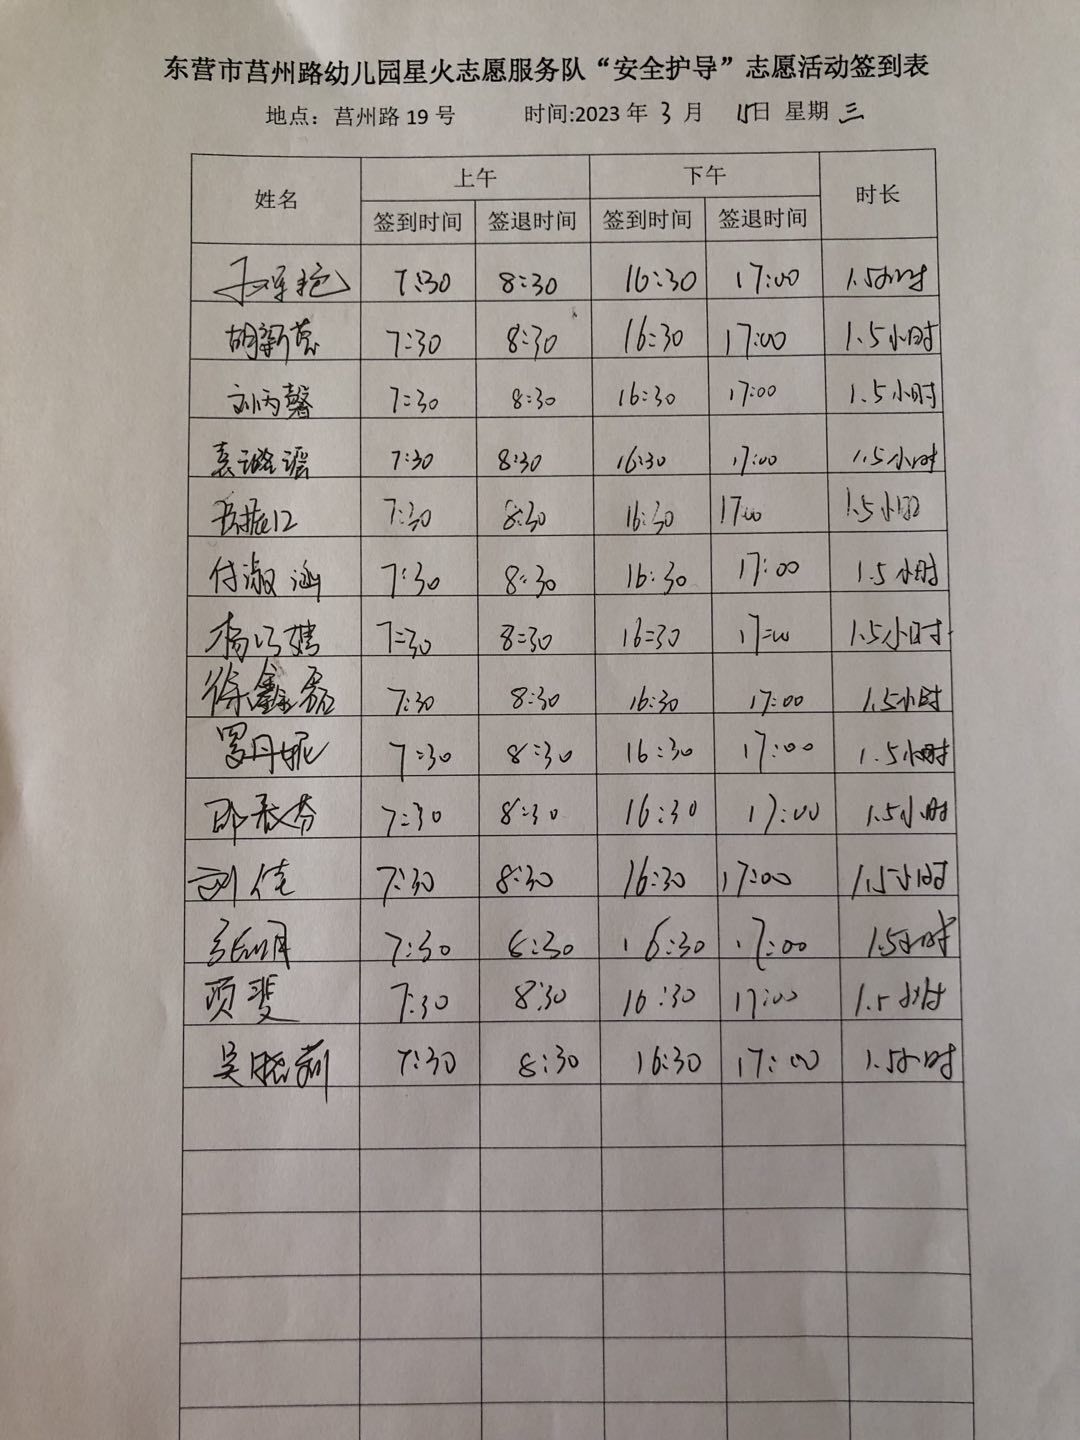 东营市莒州路幼儿园星火志愿服务队“安全护导”志愿活动签到表
地点：莒州路 19 号 时间:2023 年 3 月 15日 星期 三
姓名 上午 下午 时长
签到时间 签退时间 签到时间 签退时间
7:30 8:30 16:30 17:00 1.5小时
胡新蕊 7:30 8:30 16:30 17:00 1.5小时
刘丙馨 7:30 8:30 16:30 17:00 1.5小时
袁璐瑶 7:30 8:30 16:30 17:00 1.5小时
7:30 8:30 16:30 17:00 1.5小时
付淑涵 7:30 8:30 16:30 17:00 1.5小时
杨 7:30 8:30 16:30 17:00 1.5小时
徐鑫磊 7:30 8:30 16:30 17:00 1.5小时
罗丹妮 7:30 8:30 16:30 17:00 1.5小时
邵 芬 7:30 8:30 16:30 17:00 1.5小时
刘佳 7:30 8:30 16:30 17:00 1.5小时
7:30 8:30 16:30 17:00 1.5小时
项斐 7:30 8:30 16:30 17:00 1.5小时
吴晓莉 7:30 8:30 16:30 17:00 1.5小时